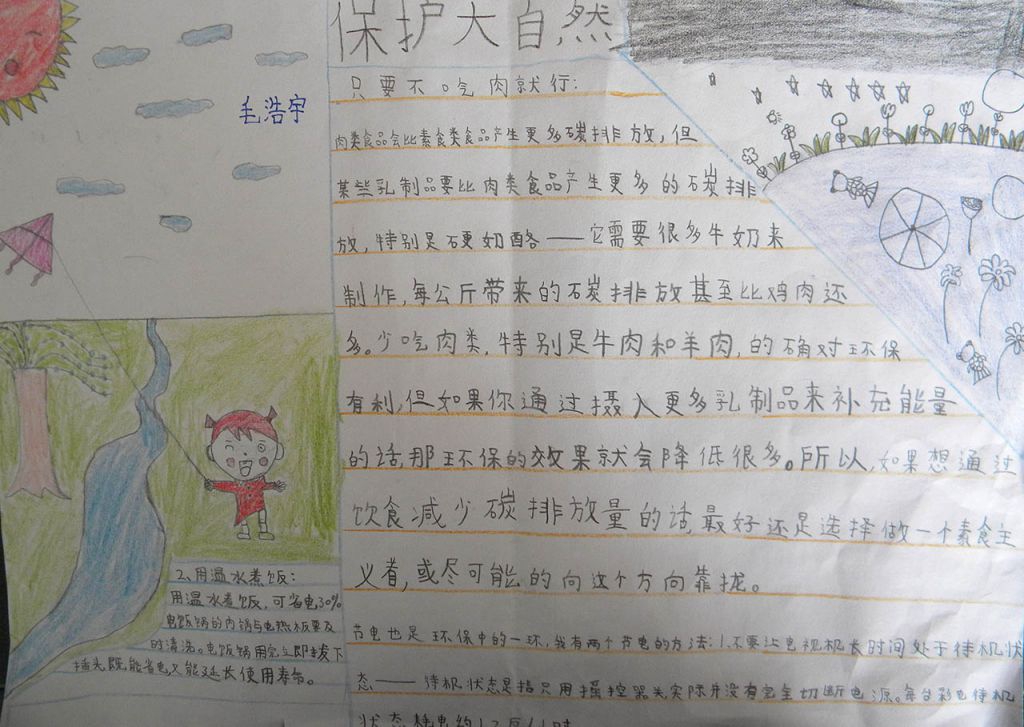 保护大自然
毛浩宇
只要不吃肉就行：
肉类食品会比素食类食品产生更多碳排放，但
某些乳制品要比肉类食品产生更多的碳排
放，特别是硬奶酪——它需要很多牛奶来
制作，每公斤带来的碳排放甚至比鸡肉还
多。少吃肉类，特别是牛肉和羊肉，的确对环保
有利，但如果你通过摄入更多乳制品来补充能量
的话那环保的效果就会降低很多。所以，如果想通过
饮食减少碳排放量的话，最好还是选择做一个素食主
义者，或尽可能的向这个方向靠拢。
节电也是环保中的一环，我有两个节电的方法：1.不要让电视机长时间处于待机状
态——待机状态是指只用摇控器关实际并没有完全切断电源。每台彩电待机
状态耗电约1.2瓦/小时
2、用温水煮饭：
用温水煮饭，可省电30%
电饭锅的内锅与电热板要及
时清洁。电饭锅用完立即拔下
插头既能省电又能延长使用寿命。